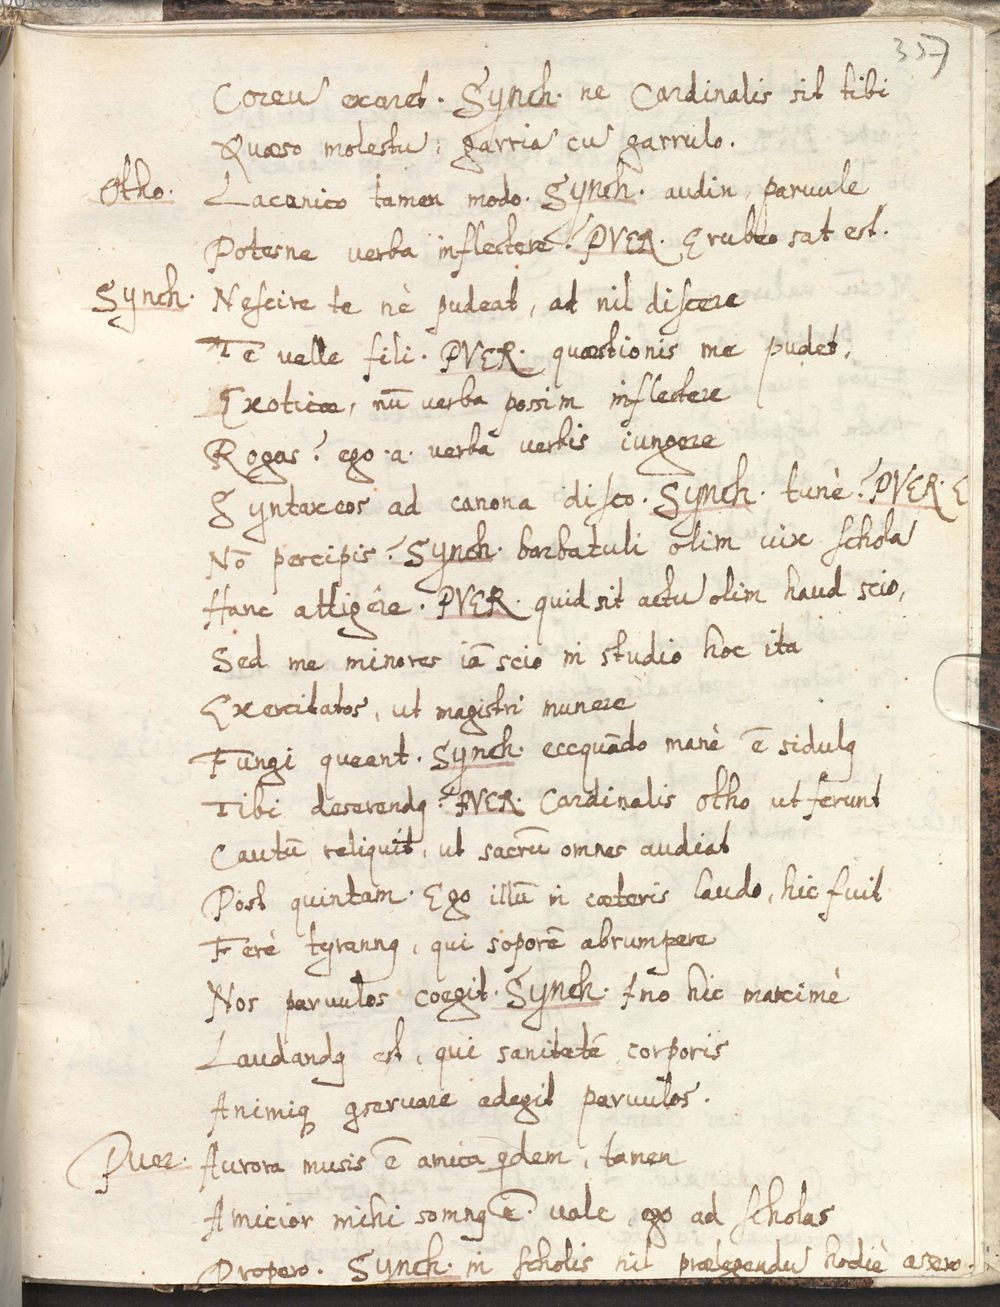 337
Coreū exaret. Synch. ne Cardinalis sit tibi
Quæso molestū, garriā cū garrulo.
Otho. Laconico tamen modo. Synch. audin, paruule
Potesne verba inflectere? PVER. Erubeo sat est.
Synch. Nescire te nè pudeat, at nil discere
Te velle fili. PVER. quæstionis me pudet,
Exoticæ, nū verba possim inflectere
Rogas? ego .a. verba verbis iungere
Syntaxeos ad canona disco. Synch. tunè? PVER. E
Nō percipis? Synch. barbatuli olim vix scholā
Hanc attigêre. PVER. quid sit actū olim haud scio,
Sed me minores iā scio in studio hoc ita
Exercitatos, ut magistri munere
Fungi queant. Synch. ecquādo manè ē sidulq
Tibi deserendq? PVER. Cardinalis Otho ut ferunt
Cautū reliquit, ut sacrū omnes audiat
Post quintam. Ego illū in cæteris laudo, hic fuit
Ferè tyrannq, qui soporē abrumpere
Nos paruulos coegit. Synch. Ino hic maximè
Laudandq est, qui sanitatē corporis
Animiq; ꝯseruare adegit paruulos.
Puer. Aurora musis ē amica qdem, tamen
Amicior mihi somnq ē. vale, ego ad scholas
Propero. Synch. in scholis nil prælegendū hodiè assero.